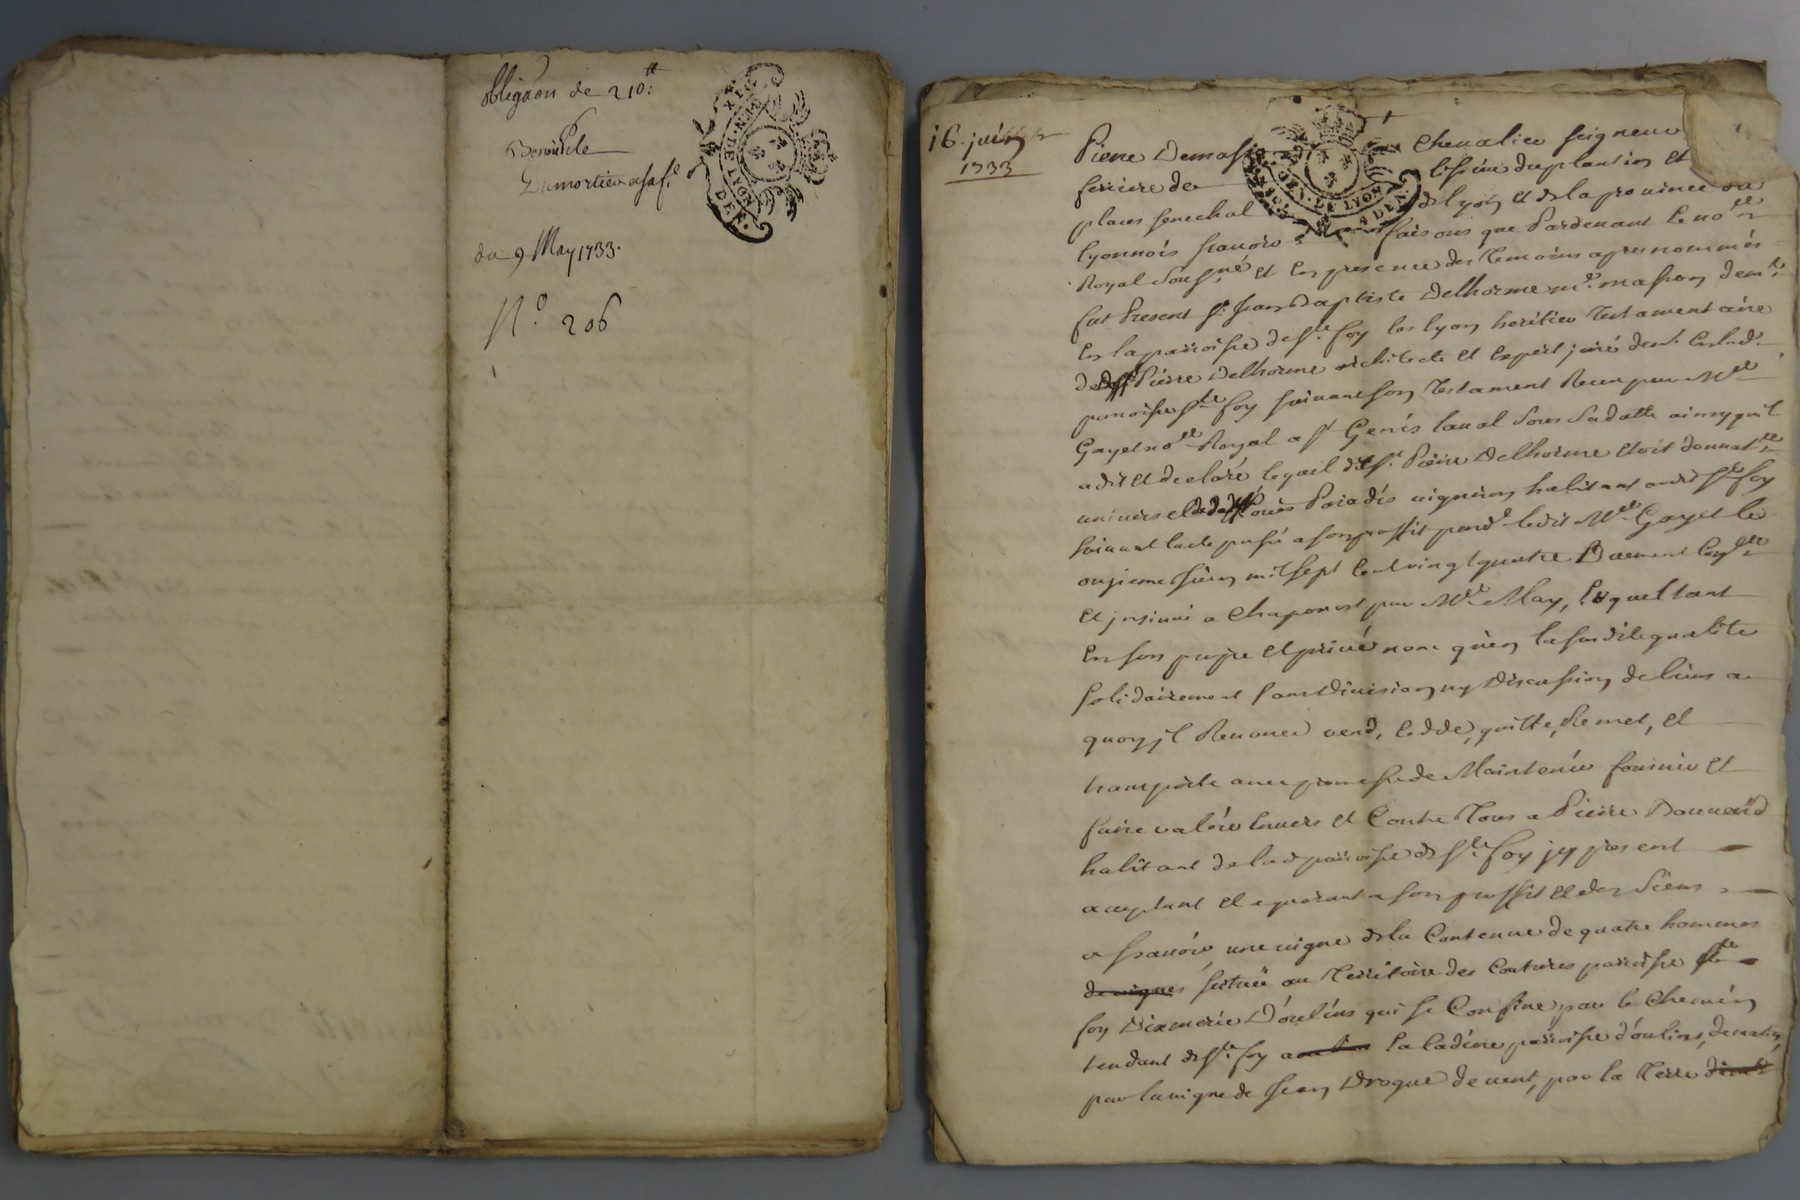 obligãon de 210.tt
Benoist
Dumortier a sa f.e
du 9 May 1733.
N.o 206
GEN. DE LYON
DEN.
16 juin
1733
Pierre Demas Chevalier seigneur
plantin et
places senechal de lyon et de la province du
lyonnois sçavoir faisons que Pardevant le no.re
Royal Sous.né et En presence des Temoins apres nommés
fut Present s.r Jean Baptiste Delhorme m.e masson dem.t
En la parroisse de s.te foy les lyon heritier Testamentaire
de Pierre Delhorme architecte et Expert juré dem.t En lad.e
parroisse s.te foy suivant son Testament Receu par M.e
Gayet no.re Royal a s.t Genis laval Sous Sa datte ainsy quil
a dit et declaré lequel dit s.r Pierre Delhorme etoit donnat.re
universel Paradis vigneron habitant audit s.te foy
suivant lacte passé a son proffit pard.t ledit M.e Gayet le
onzieme juin mil sept Cent vingt quatre Duement
et insinué a Chaponost par M.e May, Lequel tant
En son propre et privé nom qu'en la susditte qualité
solidairement sans division ny Discussion de biens a
quoy jl Renonce vend, Cedde, quitte, Remet, et
transporte avec promesse de Maintenir fournir et
faire valoir Envers et Contre Tous a Pierre
habitant de lad.e parroisse de s.te foy jcy present
acceptant et aquerant a son proffit et des Siens
a sçavoir, une vigne de la Contenue de quatre hommes
scituée au Territoire des Coutures parroisse s.te
foy Dixmerie D'oulins qui se Confine par le Chemin
tendant de s.te foy a la Cadiere parroisse d'oulins, de matin,
par la vigne de Jean Drogue de vent, par la Terre